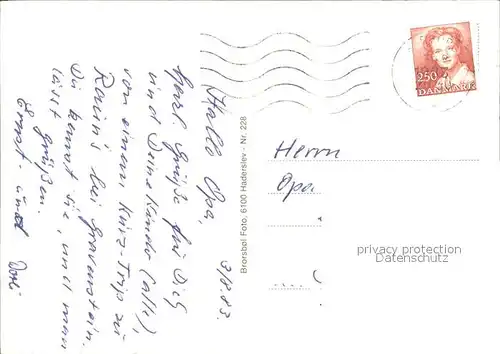 3/8.83.
Hallo Opa,
herzl. Grüße für Dich
und Deine Kinder (alle),
von einem Kurz-Trip zu
bei Gravenstein.
Du kennst sie, und man
lässt grüßen.
Ernst und
Brorsbøl Foto, 6100 Haderslev - Nr. 228
250
DANMARK
Herrn
Opa
privacy protection
Datenschutz